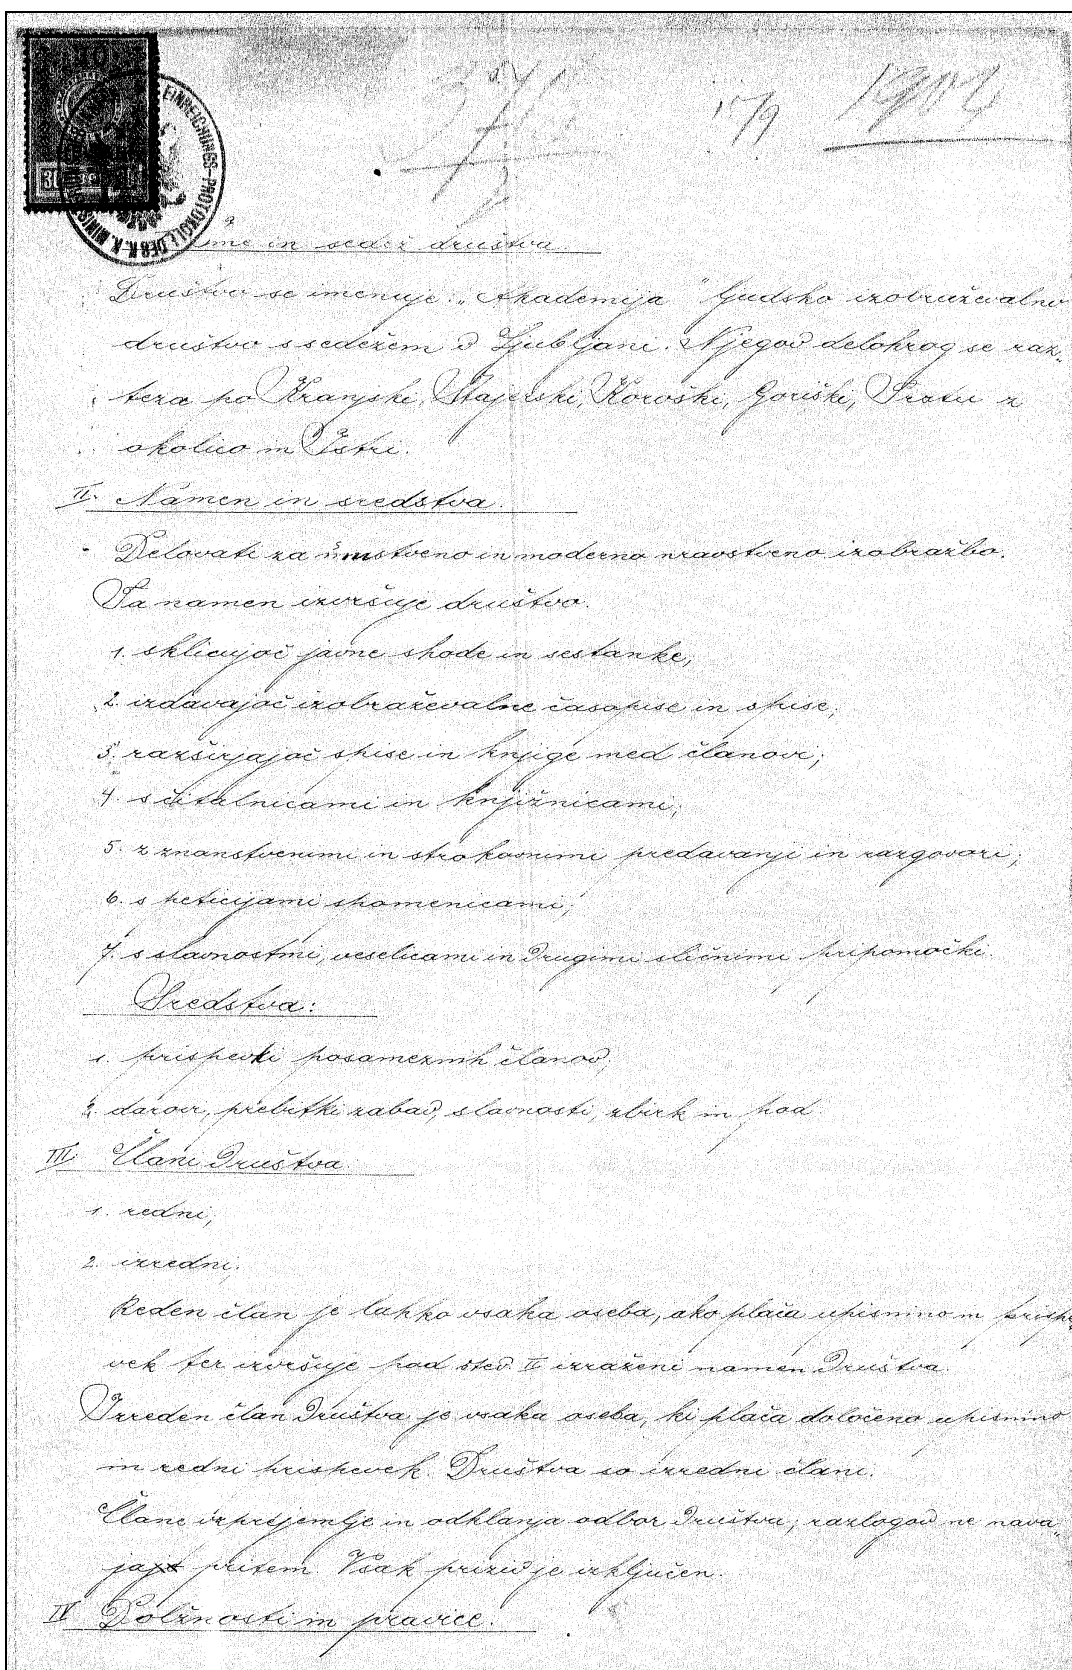 17/9 1907
EINREICHUNGS-PROTOKOLL DES K.K. MINIS
Ime in sedež društva.
Društvo se imenuje: „Akademija" ljudsko izobraževalno
društvo s sedežem v Ljubljani. Njegov delokrog se raz-
teza po Kranjski, Štajerski, Koroški, Goriški, Trstu z
okolico in Istri.
II. Namen in sredstva.
Delovati za umstveno in moderno nravstveno izobrazbo.
Ta namen izvršuje društvo.
1. sklicujoč javne shode in sestanke;
2. izdavajoč izobraževalne časopise in spise;
3. razširjajoč spise in knjige med članovi;
4. s čitalnicami in knjižnicami;
5. z znanstvenimi in strokovnimi predavanji in razgovori;
6. s peticijami spomenicami;
7. s slavnostmi, veselicami in drugimi sličnimi pripomočki.
Sredstva:
1. prispevki posameznih članov;
2. darovi, prebitki zabav, slavnosti, zbirk in pod.
III. Člani društva.
1. redni,
2. izredni.
Reden član je lahko vsaka oseba, ako plača upisnino in prispe-
vek ter izvršuje pod štev. II izraženi namen društva.
Izreden član društva je vsaka oseba, ki plača določeno upisnino
in redni prispevek. Društva so izredni člani.
Člane izprejemlje in odklanja odbor društva; razlogov ne nava-
ja pritem. Vsak priziv je izključen.
IV Dolžnosti in pravice.